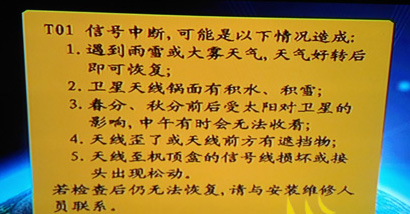 T01 信号中断,可能是以下情况造成:
1. 遇到雨雪或大雾天气,天气好转后
即可恢复;
2. 卫星天线锅面有积水、积雪;
3. 春分、秋分前后受太阳对卫星的
影响,中午有时会无法收看;
4. 天线歪了或天线前方有遮挡物;
5. 天线至机顶盒的信号线损坏或接
头出现松动。
若检查后仍无法恢复,请与安装维修人
员联系。